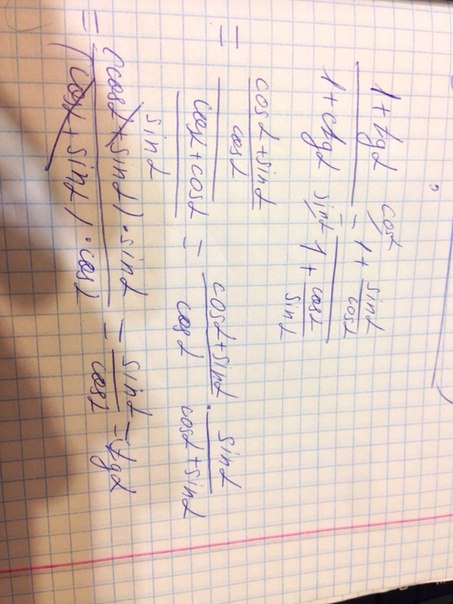 (1+tgα)/(1+ctgα) = (cosα 1+ sinα/cosα)/(sinα 1+ cosα/sinα)
= ((cosα+sinα)/cosα)/((cosα+cosα)/sinα) = (cosα+sinα)/cosα · sinα/(cosα+sinα)
= ((cosα+sinα)·sinα)/((cosα+sinα)·cosα) = sinα/cosα = tgα